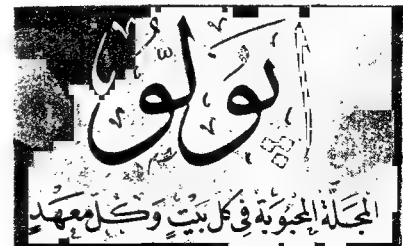 اپولّو
المجَلَّة المحبُوبَة فِى كل بَيتٍ وَكل مَعهَدٍ